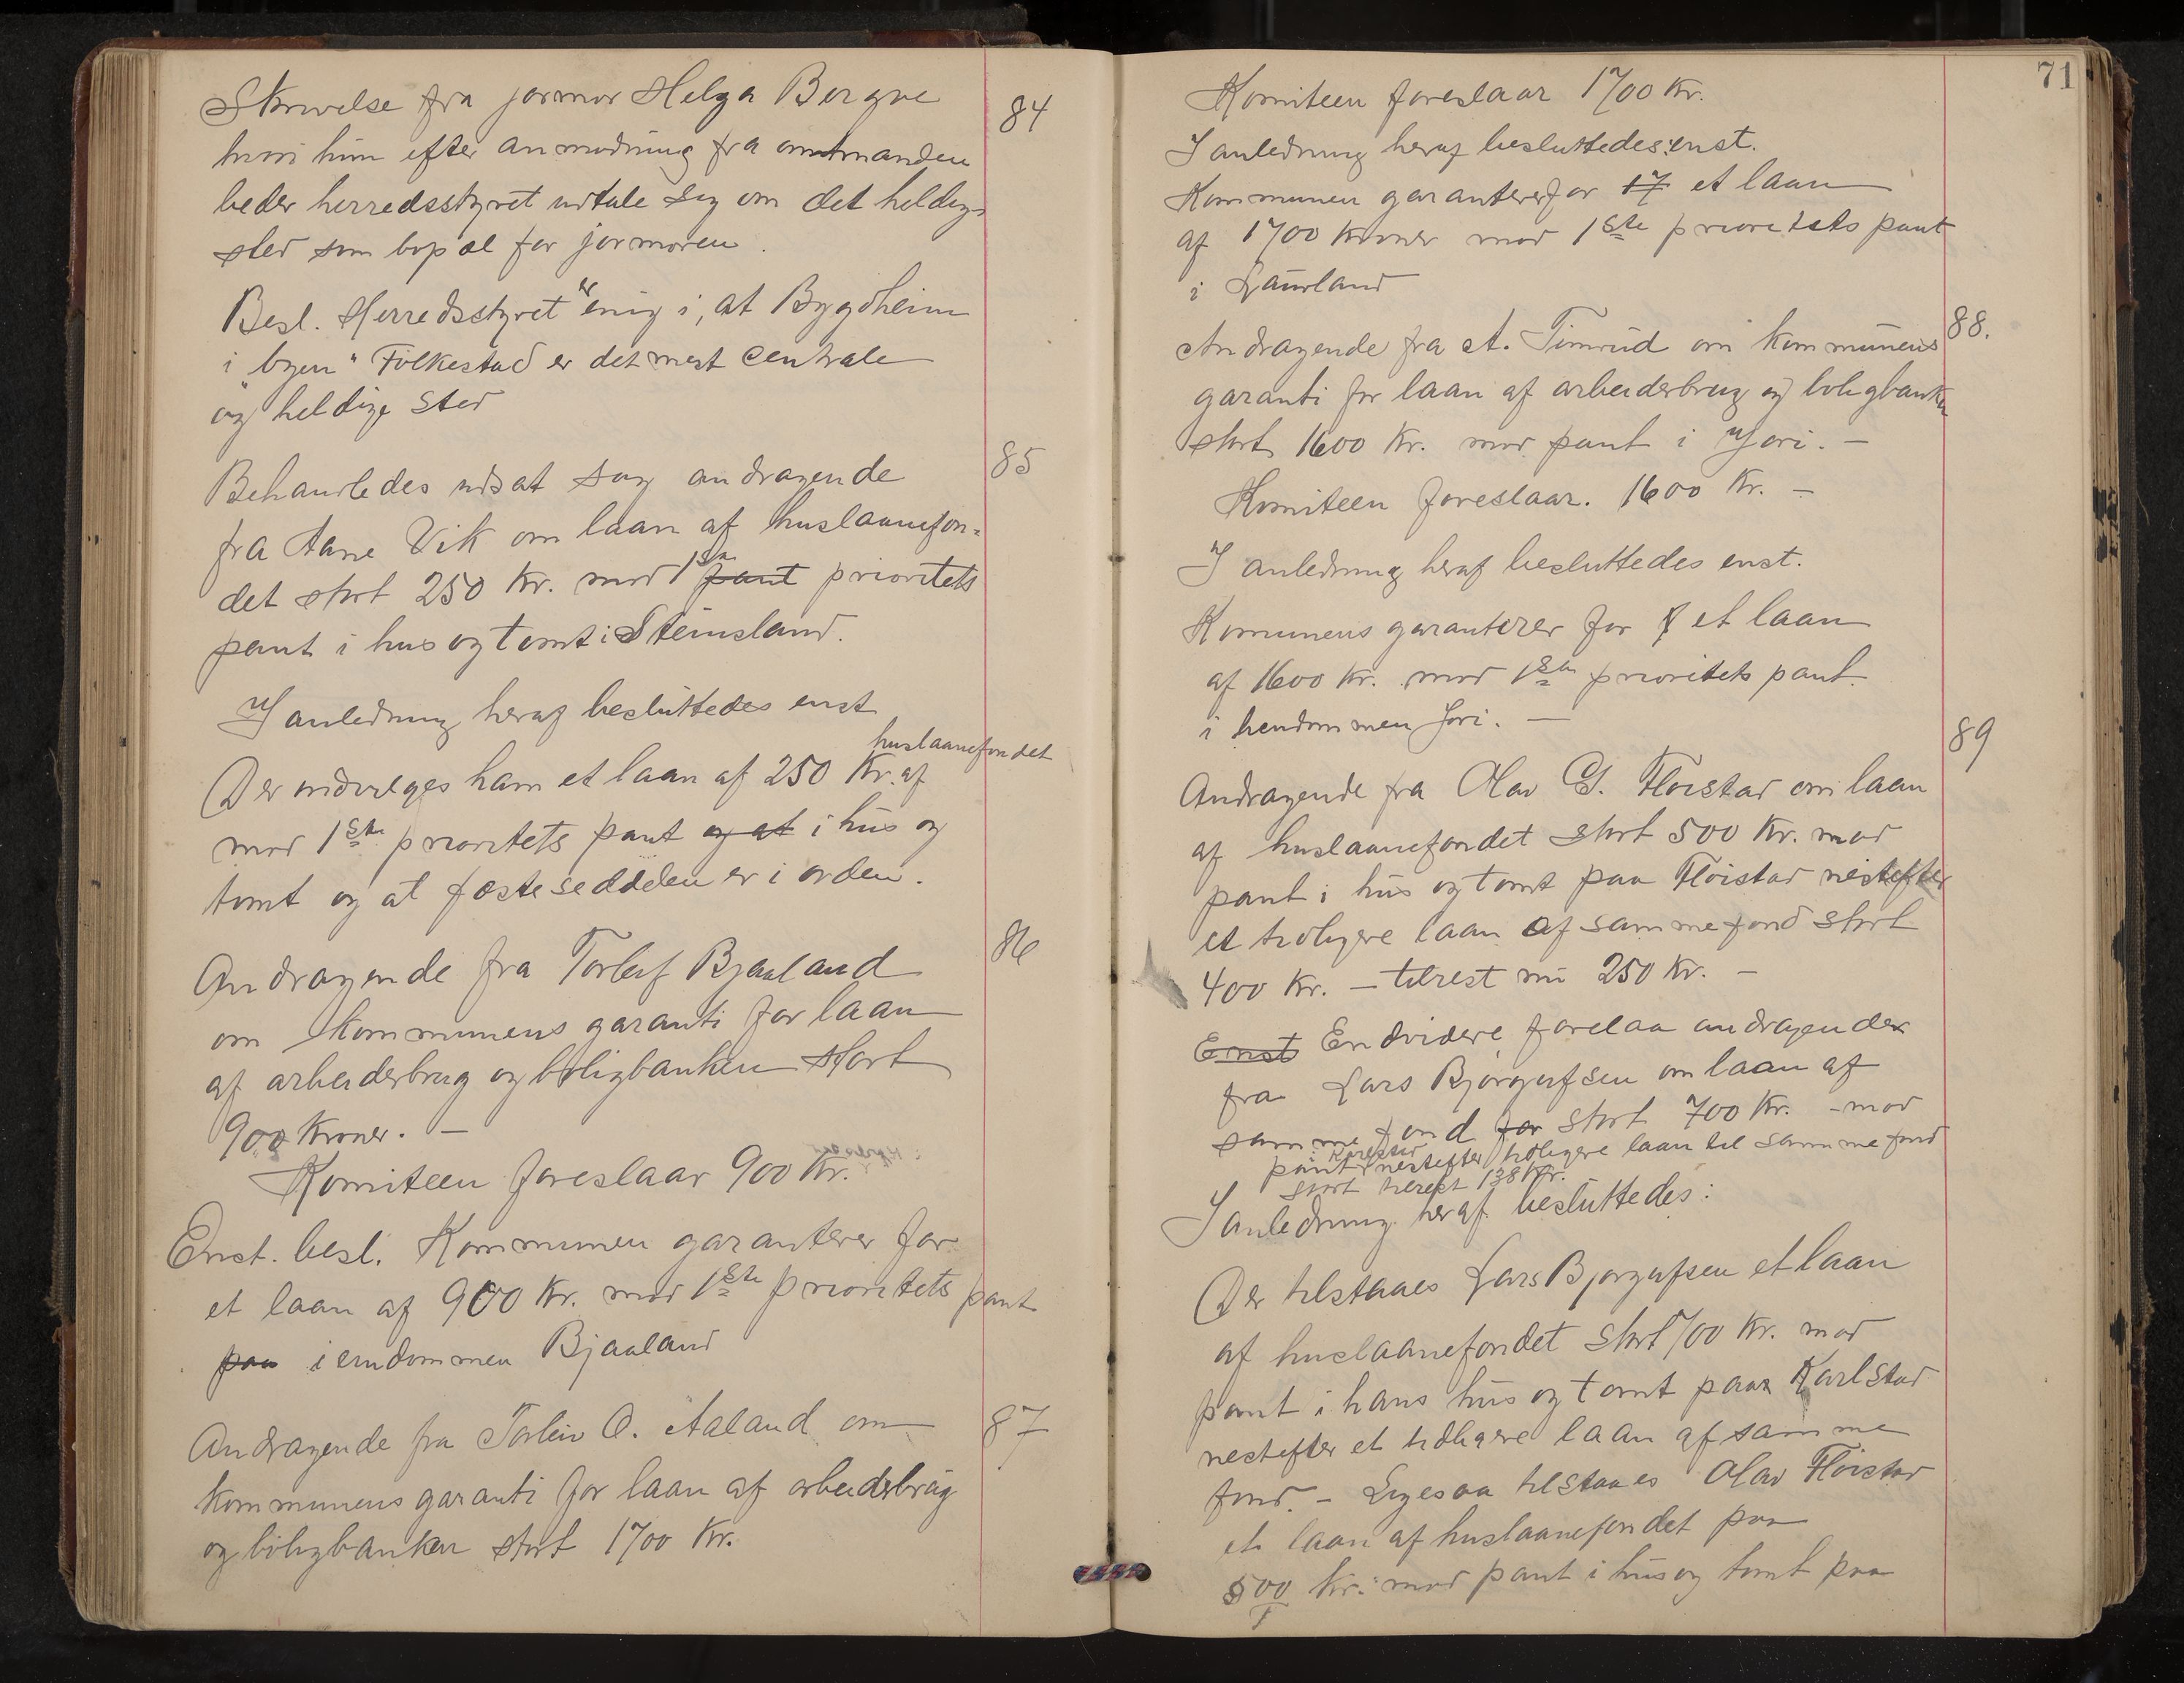 Skrivelse fra jormor Helga Borgne
84
hvori hun efter anmodning fra amtmanden
beder herredsstyret udtale sig om det heldigs
sted som bopæl for jormoren.
Besl. Herredsstyret er enig i, at Bygdheim
i "byen" Folkestad er det mest centrale
og heldige sted
Behandledes udsat sag andragende
85
fra Aane Vik om laan af huslaanefon-
det stort 250 Kr. mod 1ste pant prioritets
pant i hus og tomt i Steinsland.
I anledning heraf besluttedes enst
huslaanefondet
Der indvilges ham et laan af 250 Kr. af
mod 1ste prioritets pant og at i hus og
tomt og at festeseddelen er i orden.
Andragende fra Torleif Bjaaland
86
om kommunens garanti for laan
af arbeiderbrug og boligbanken stort
900 Kroner. —
Komiteen foreslaar 900 Kr.
Enst. besl. Kommunen garanterer for
et laan af 900 Kr. mod 1ste prioritets pant
paa i eiendommen Bjaaland
Andragende fra Torleiv O. Aaland om
87
kommunens garanti for laan af arbeiderbrug
og boligbanken stort 1700 Kr.
71
Komiteen foreslaar 1700 Kr.
I anledning heraf besluttedes: enst.
Kommunen garanterer for 17 et laan
af 1700 Kroner mod 1ste prioritets pant
i Laurland
Andragende fra A. Timrud om kommunens
88.
garanti for laan af arbeiderbrug og boligbanken
stort 1600 Kr. mod pant i Jori. —
Komiteen foreslaar. 1600 Kr. —
I anledning heraf besluttedes enst.
Kommunens garanterer for et laan
af 1600 Kr. mod 1ste prioritets pant.
i eiendommen Jori. —
89
Andragende fra Olav G. Floistad om laan
af huslaanefondet stort 500 Kr. mod
pant i hus og tomt paa Floistad nestefter
et tidligere laan af samme fond stort
400 Kr. — tilrest nu 250 Kr. —
Enst Endvidere forelaa andragender
fra Lars Bjørgufsen om laan af
samme fond for stort 700 Kr. - mod
pant i Karlstad nestefter tidligere laan til samme fond
stort tilrest 138 Kr.
I anledning heraf besluttedes:
Der tilstaaes Lars Bjørgufsen et laan
af huslaanefondet stort 700 Kr. mod
pant i hans hus og tomt paa Karlstad
nestefter et tidligere laan af samme
fond. - Ligesaa tilstaaes Olav Floistad
et laan af huslaanefondet paa
500 Kr. mod pant i hus og tomt paa